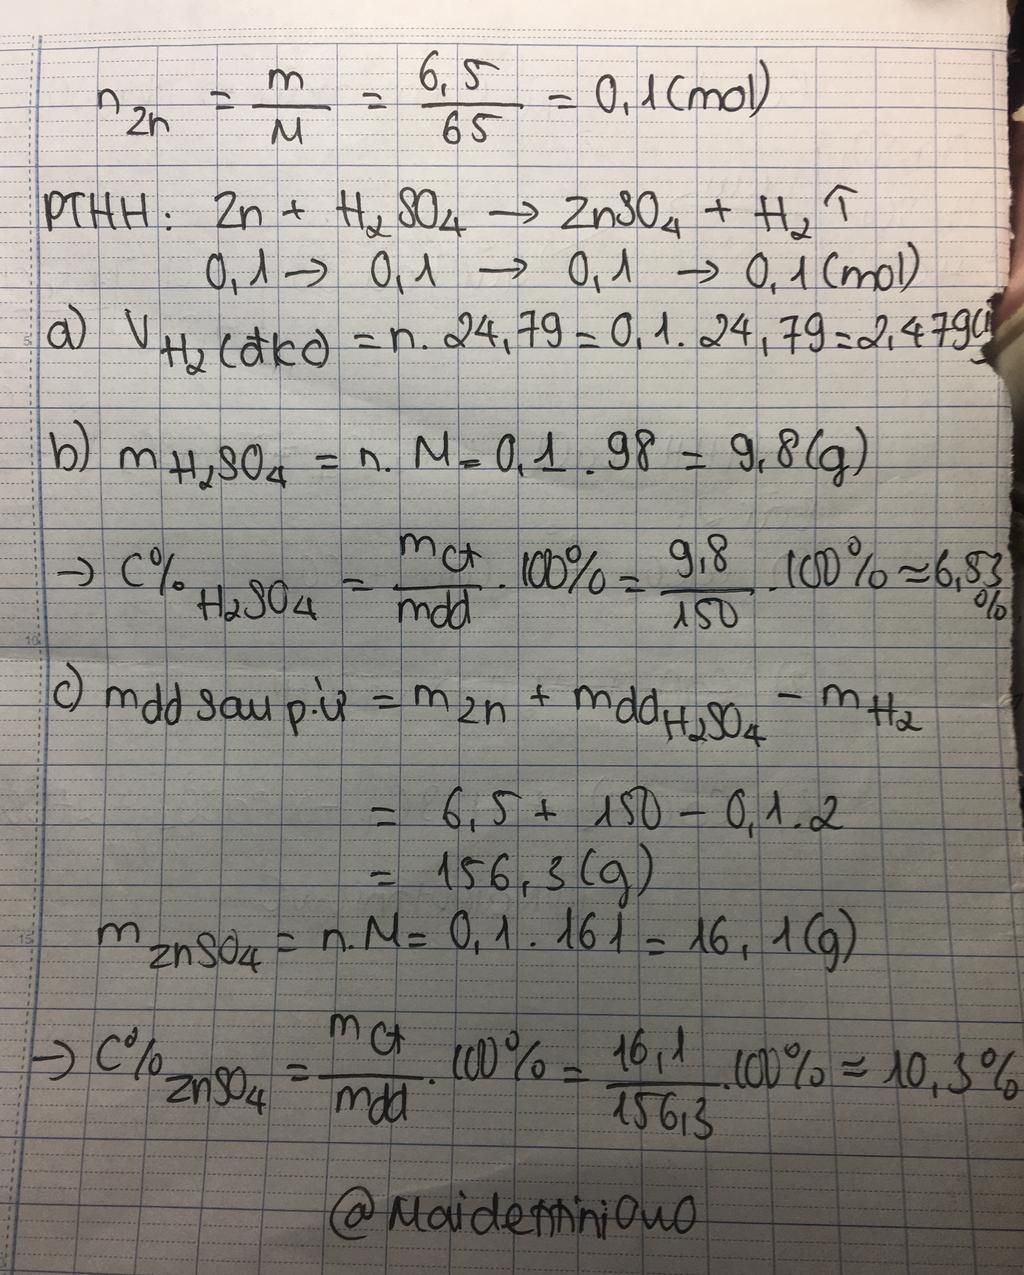 n Zn = m/M = 6,5/65 = 0,1 (mol)
PTHH: Zn + H₂SO₄ → ZnSO₄ + H₂ ↑
0,1 → 0,1 → 0,1 → 0,1 (mol)
a) V H₂ (đkc) = n. 24,79 = 0,1. 24,79 = 2,479(l)
b) m H₂SO₄ = n. M = 0,1 . 98 = 9,8 (g)
→ C% H₂SO₄ = mct/mdd . 100% = 9,8/150 . 100% ≈ 6,53%
c) mdd sau p.ư = m Zn + mdd H₂SO₄ - m H₂
= 6,5 + 150 - 0,1.2
= 156,3 (g)
m ZnSO₄ = n.M = 0,1 . 161 = 16,1 (g)
→ C% ZnSO₄ = mct/mdd . 100% = 16,1/156,3 . 100% ≈ 10,3%